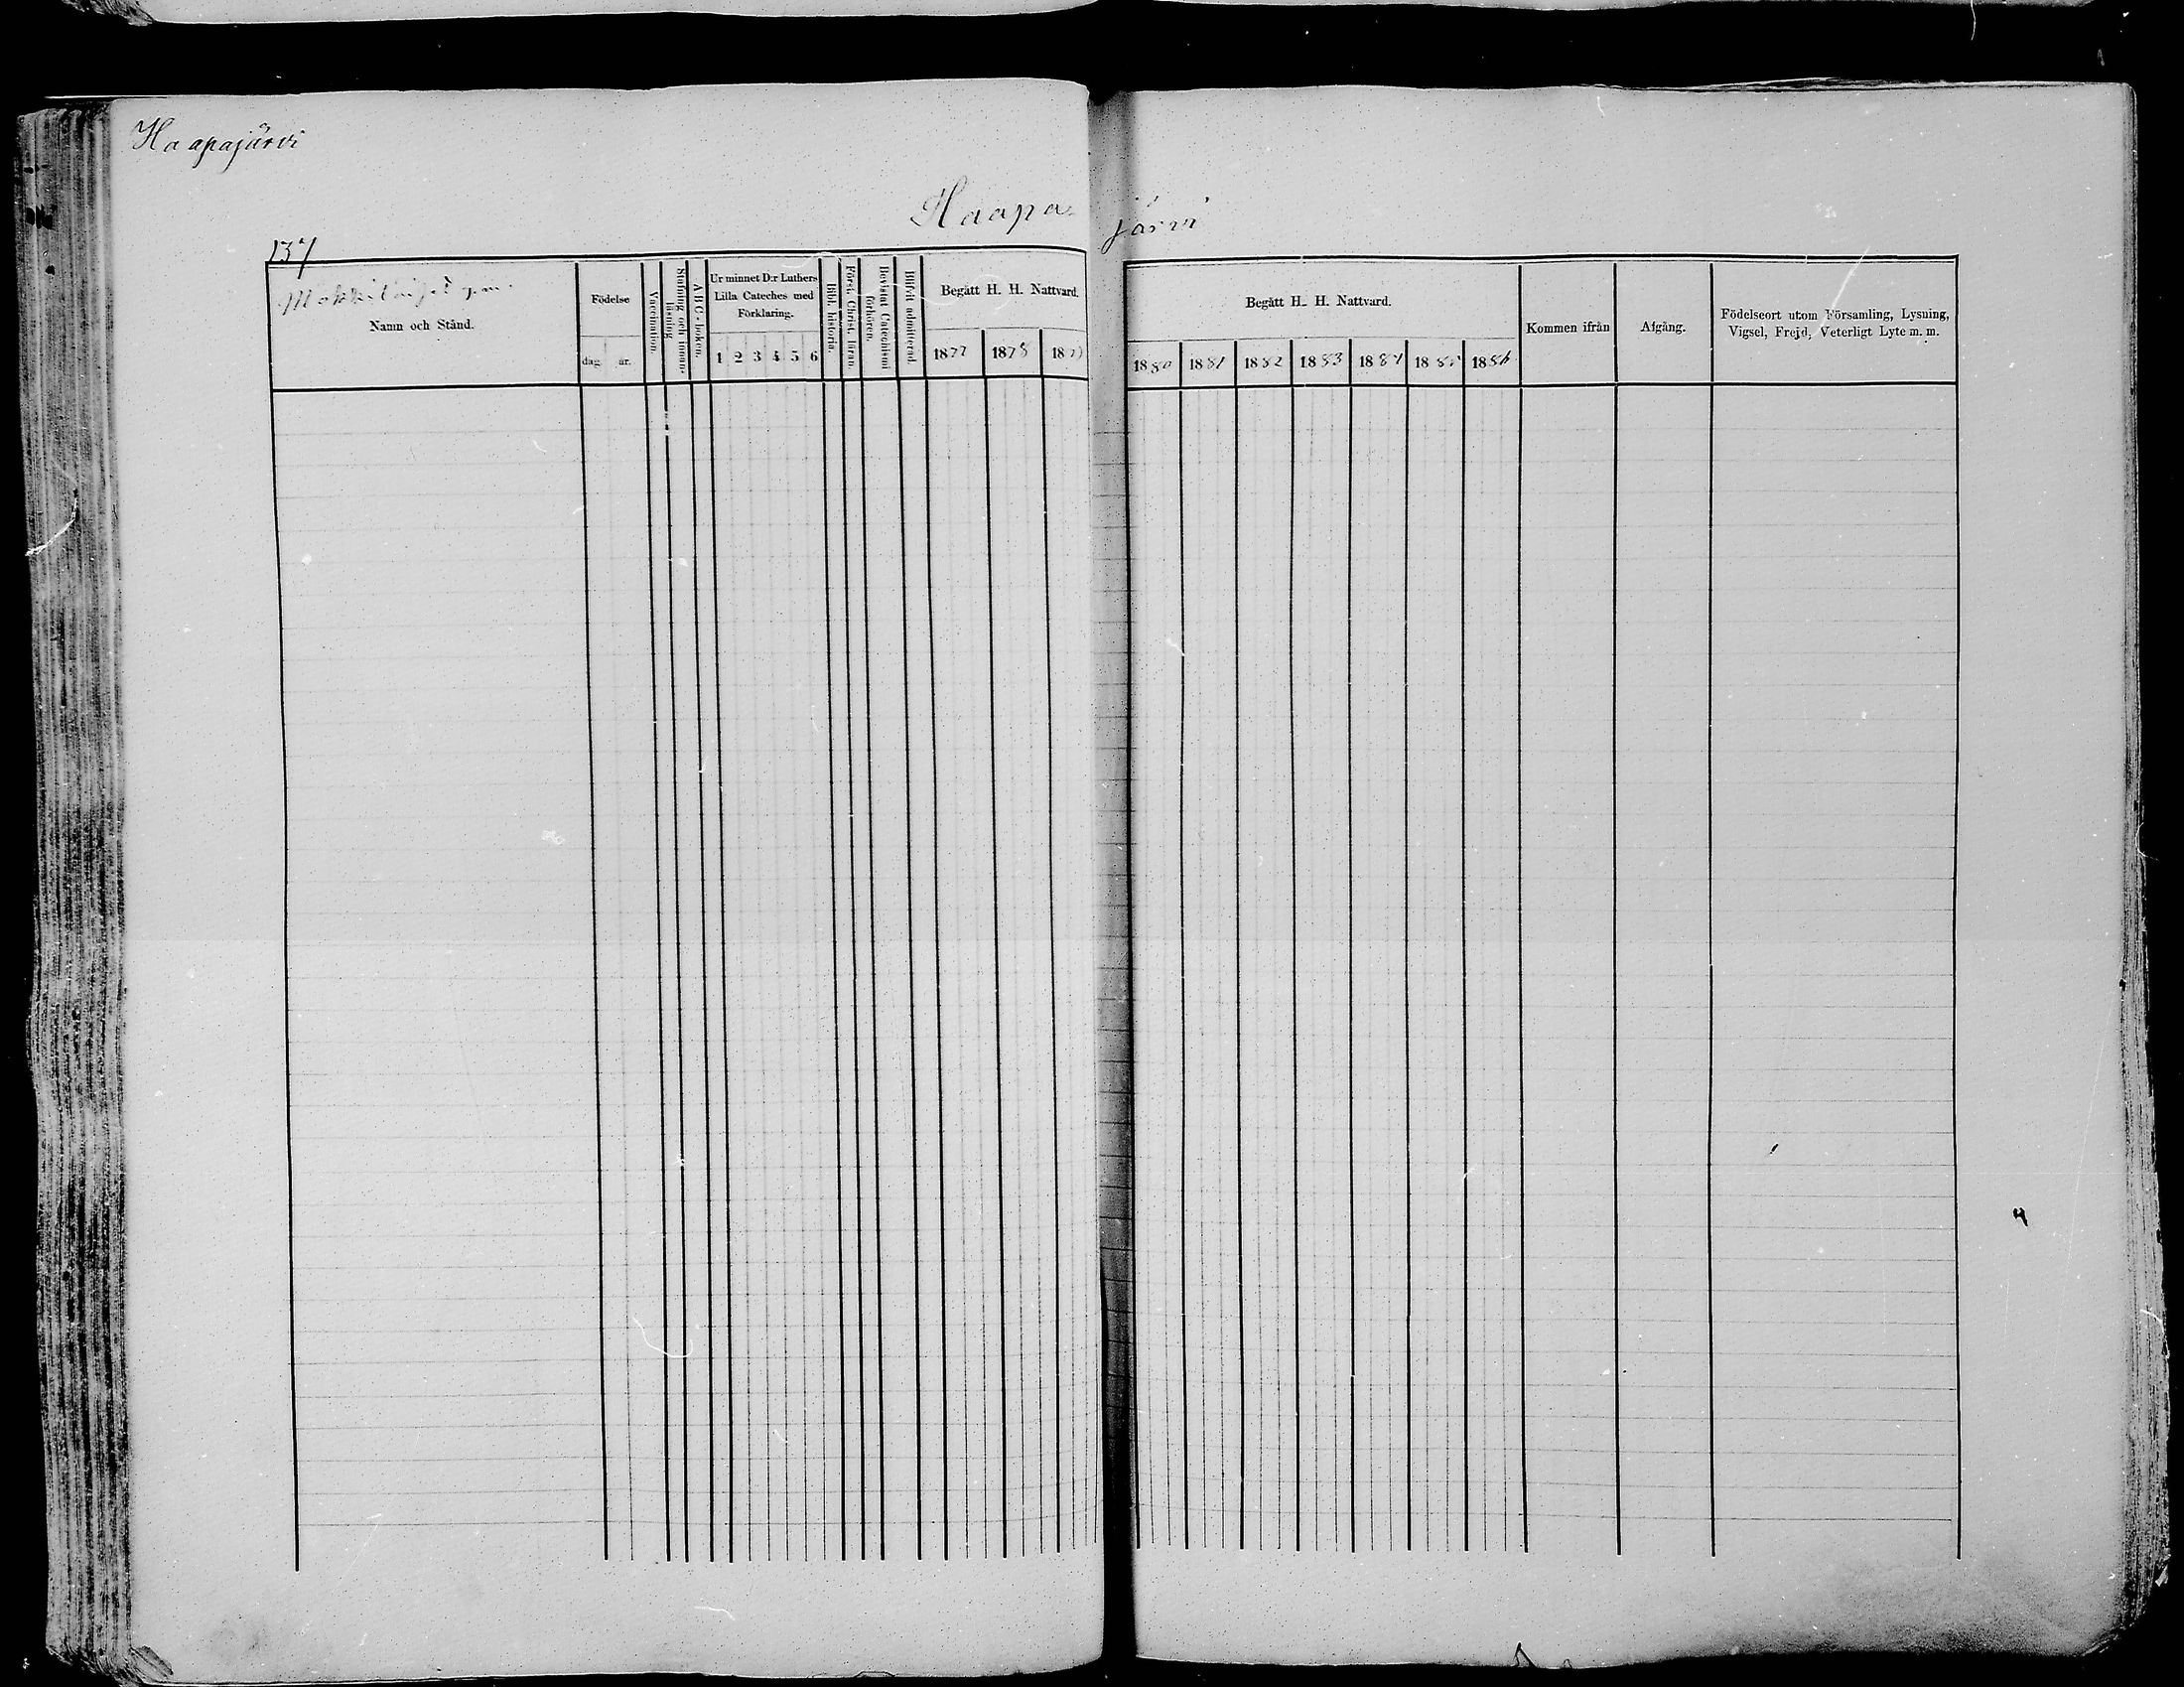 Haapajärvi
Haapa- järvi
137
Namn och Stånd.
Födelse
dag. år.
Vaccination.
Stafning och innan-läsning
A B C - boken.
Ur minnet D:r Luthers
Lilla Cateches med
Förklaring.
1 2 3 4 5 6
Bibl. historia.
Först. Christ. läran.
Bevistat Catechismi förhören.
Blifvit admitterad.
Begått H. H. Nattvard.
1877 1878 1879
Begått H. H. Nattvard.
1880 1881 1882 1883 1884 1885 1886
Kommen ifrån
Afgång.
Födelseort utom Församling, Lysning,
Vigsel, Frejd, Veterligt Lyte m. m.